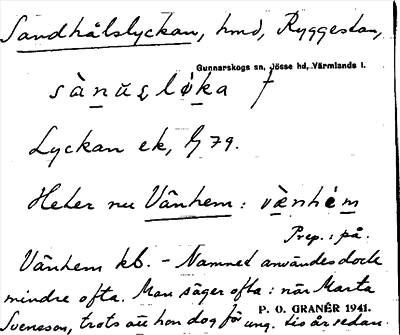 Sandhålslyckan, hmd, Ryggestan,
Gunnarskogs sn, Jösse hd, Värmlands l.
Lyckan ek, G 79.
Heter nu Vänhem: vä̀nhèm
Prep.: på.
Vänhem kb. – Namnet användes dock
mindre ofta. Man säger ofta: när Marta
P. O. GRANÉR 1941.
Svensson, trots att hon dog för ung. tio år sedan.